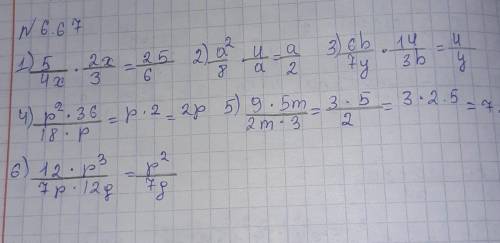 № 6.67
1) 5/4x · 2x/3 = 25/6 2) a²/8 · 4/a = a/2 3) 6b/7y · 14/3b = 4/y
4) p² · 36 / 18 · p = p · 2 = 2p 5) 9 · 5m / 2m · 3 = 3 · 5 / 2 = 3 · 2.5 = 7.
6) 12 · p³ / 7p · 12g = p² / 7g